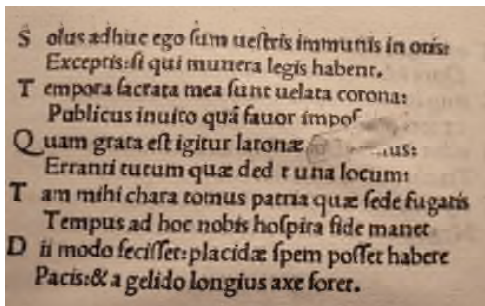 S olus adhuc ego sum uestris immunis in oris:
Exceptis: si qui munera legis habent.
T empora sacrata mea sunt uelata corona:
Publicus inuito quā fauor impos
Q uam grata est igitur latonæ us:
Erranti tutum quæ ded t una locum:
T am mihi chara tomus patria quæ sede fugatis
Tempus ad hoc nobis hospita fide manet
D ii modo fecisset: placidæ spem posset habere
Pacis: & a gelido longius axe foret.